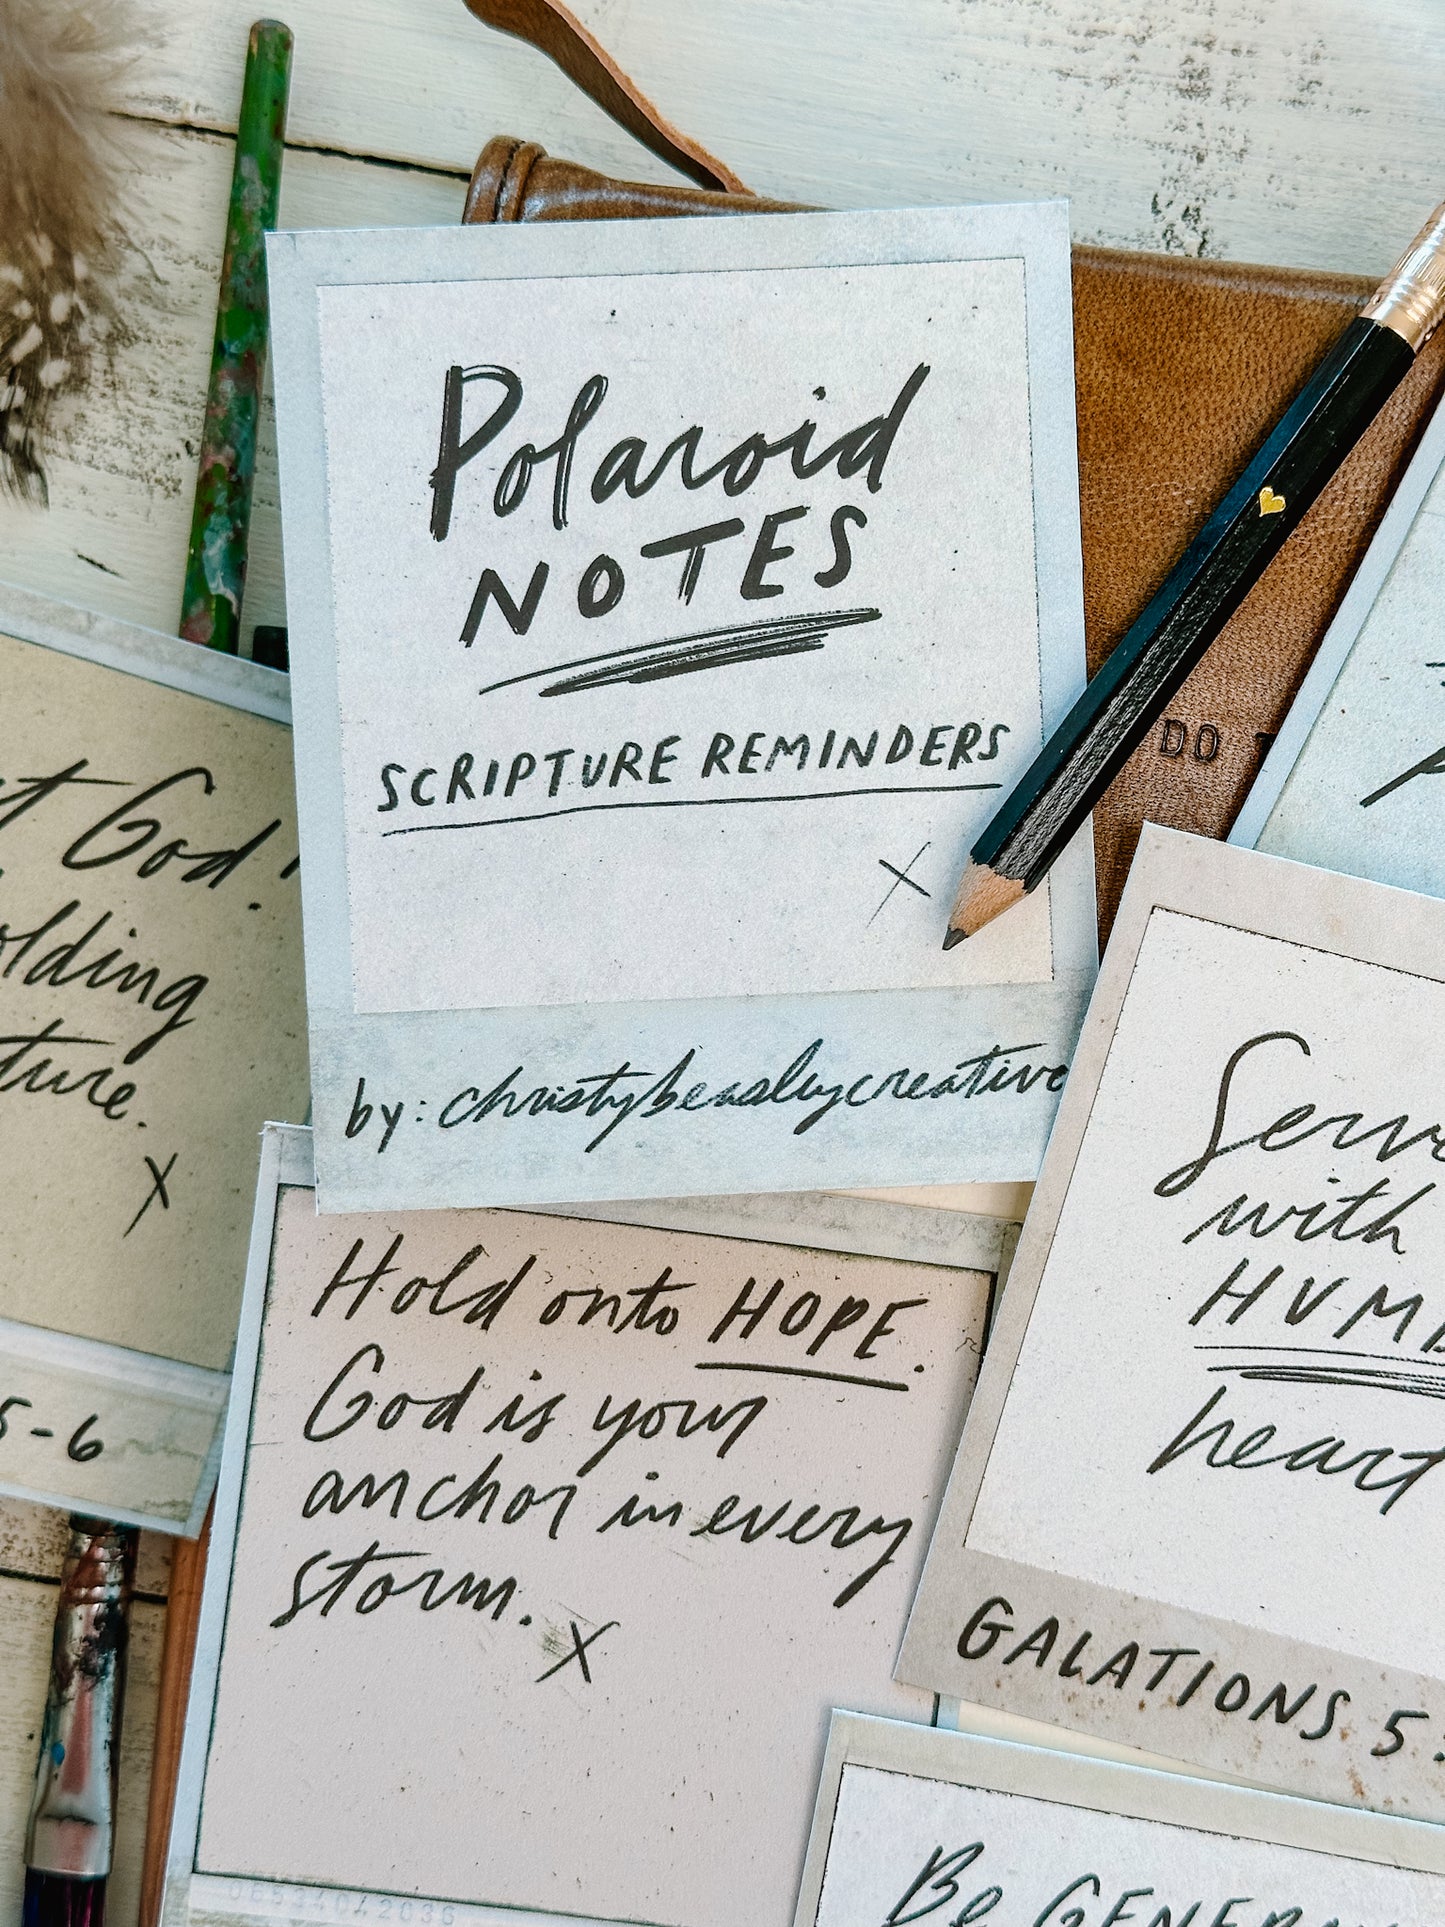 Polaroid
NOTES
SCRIPTURE REMINDERS
X
by: christybeasleycreative
God.
olding
ture.
X
5-6
Hold onto HOPE.
God is your
anchor in every
storm.
X
DO
Serve
with
HUMB
heart
GALATIONS 5:
Be GENER